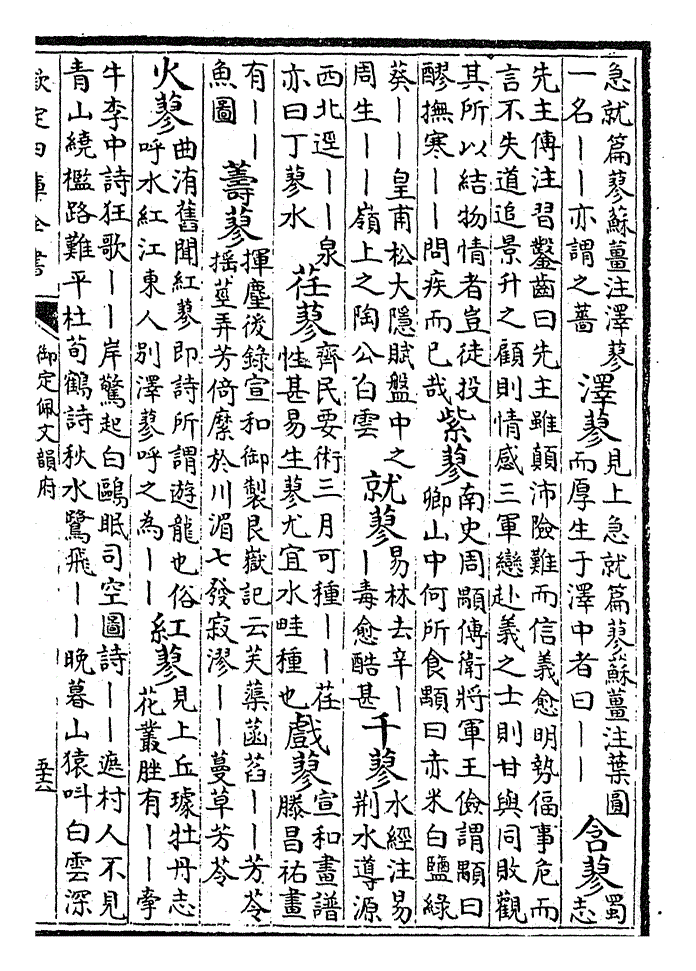 急就篇蓼蘇薑注澤蓼
一名——亦謂之薔
澤蓼
見上急就篇蓼蘇薑注葉圓
而厚生于澤中者曰——
含蓼
蜀
志
先主傳注習鑿齒曰先主雖顛沛險難而信義愈明勢偪事危而
言不失道追景升之顧則情感三軍戀赴義之士則甘與同敗觀
其所以結物情者豈徒投
醪撫寒——問疾而已哉
紫蓼
南史周顒傳衛將軍王儉謂顒曰
卿山中何所食顒曰赤米白鹽綠
葵——皇甫松大隱賦盤中之
周生——嶺上之陶公白雲
就蓼
易林去辛—
—毒愈酷甚
千蓼
水經注易
荆水導源
西北逕——泉
亦曰丁蓼水
荏蓼
齊民要術三月可種——荏
性甚易生蓼尤宜水畦種也
戲蓼
宣和畫譜
滕昌祐畫
有——
魚圖
薵蓼
揮麈後錄宣和御製艮嶽記云芙蕖菡萏——芳苓
搖莖弄芳倚縻於川湄七發寂漻——蔓草芳苓
火蓼
曲洧舊聞紅蓼即詩所謂遊龍也俗
呼水紅江東人別澤蓼呼之為——
紅蓼
見上丘璩牡丹志
花叢脞有——牽
牛李中詩狂歌——岸驚起白鷗眠司空圖詩——遮村人不見
青山繞檻路難平杜荀鶴詩秋水鷺飛——晚暮山猿呌白雲深
欽定四庫全書
御定佩文韻府